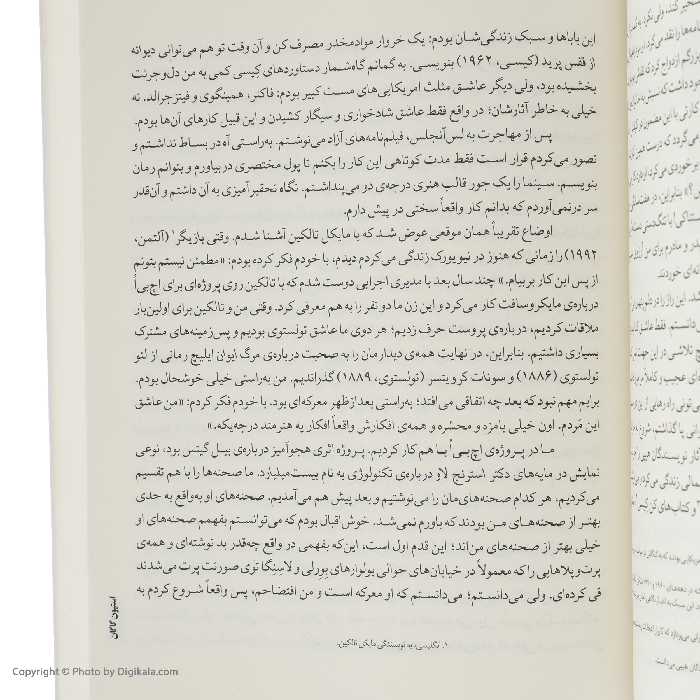 این باباها و سبک زندگی‌شان بودم: یک خروار موادمخدر مصرف کن و آن وقت تو هم می‌توانی دیوانه
از قفس پرید (کیسی، ۱۹۶۲) بنویسی. به گمانم گاه‌شمار دستاوردهای کیسی کمی به من دل‌وجرئت
بخشیده بود، ولی دیگر عاشق مثلث امریکایی‌های مست کبیر بودم: فاکنر، همینگوی و فیتزجرالد. نه
خیلی به خاطر آثارشان؛ در واقع فقط عاشق شادخواری و سیگار کشیدن و این قبیل کارهای آن‌ها بودم.
پس از مهاجرت به لس‌آنجلس، فیلم‌نامه‌های آزاد می‌نوشتم. به‌راستی آه در بساط نداشتم و
تصور می‌کردم قرار است فقط مدت کوتاهی این کار را بکنم تا پول مختصری دربیاورم و بتوانم رمان
بنویسم. سینما را یک جور قالب هنری درجه‌ی دو می‌پنداشتم. نگاه تحقیرآمیزی به آن داشتم و آن‌قدر
سر درنمی‌آوردم که بدانم کار واقعاً سختی در پیش دارم.
اوضاع تقریباً همان موقعی عوض شد که با مایکل تالکین آشنا شدم. وقتی بازیگر۱ (آلتمن،
۱۹۹۲) را زمانی که هنوز در نیویورک زندگی می‌کردم دیدم، با خودم فکر کرده بودم: «مطمئن نیستم بتونم
از پس این کار بربیام.» چند سال بعد با مدیری اجرایی دوست شدم که با تالکین روی پروژه‌ای برای اچ‌بی‌اُ
درباره‌ی مایکروسافت کار می‌کرد و این زن ما دو نفر را به هم معرفی کرد. وقتی من و تالکین برای اولین‌بار
ملاقات کردیم، درباره‌ی پروست حرف زدیم؛ هر دوی ما عاشق تولستوی بودیم و پس‌زمینه‌های مشترک
بسیاری داشتیم. بنابراین، در نهایت همه‌ی دیدارمان را به صحبت درباره‌ی مرگ ایوان ایلیچ رمانی از لئو
تولستوی (۱۸۸۶) و سونات کرویتسر (تولستوی، ۱۸۸۹) گذراندیم. من به‌راستی خیلی خوشحال بودم.
برایم مهم نبود که بعد چه اتفاقی می‌افتد؛ به‌راستی بعدازظهر معرکه‌ای بود. با خودم فکر کردم: «من عاشق
این مَردم. اون خیلی بامزه و محشره و همه‌ی افکارش واقعاً افکار یه هنرمند درجه‌یکه.»
ما در پروژه‌ی اچ‌بی‌اُ با هم کار کردیم. پروژه اثری هجوآمیز درباره‌ی بیل گیتس بود، نوعی
نمایش در مایه‌های دکتر استرنج لاو درباره‌ی تکنولوژی به نام بیست‌میلیارد. ما صحنه‌ها را با هم تقسیم
می‌کردیم، هر کدام صحنه‌های‌مان را می‌نوشتیم و بعد پیش هم می‌آمدیم. صحنه‌های او به‌واقع به حدی
بهتر از صحنه‌های من بودند که باورم نمی‌شد. خوش‌اقبال بودم که می‌توانستم بفهمم صحنه‌های او
خیلی بهتر از صحنه‌های من‌اند؛ این قدم اول است، این‌که بفهمی در واقع چه‌قدر بد نوشته‌ای و همه‌ی
پرت‌وپلاهایی را که معمولاً در خیابان‌های حوالی بولوارهای بِوِرلی و لاسِنِگا توی صورتت پرت می‌شدند
قی کرده‌ای. ولی می‌دانستم؛ می‌دانستم که او معرکه است و من افتضاحم، پس واقعاً شروع کردم به
۱. نگارش به نویسندگی مایکل تالکین.
استیون گاگان
Copyright © Photo by Digikala.com